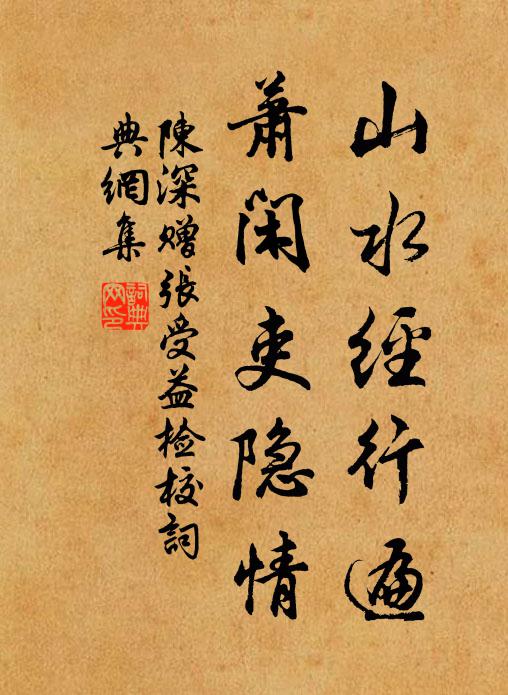 山水經行遍
蕭閑吏隐情
陳深贈張受益檢校詞
典網集
詞典網印